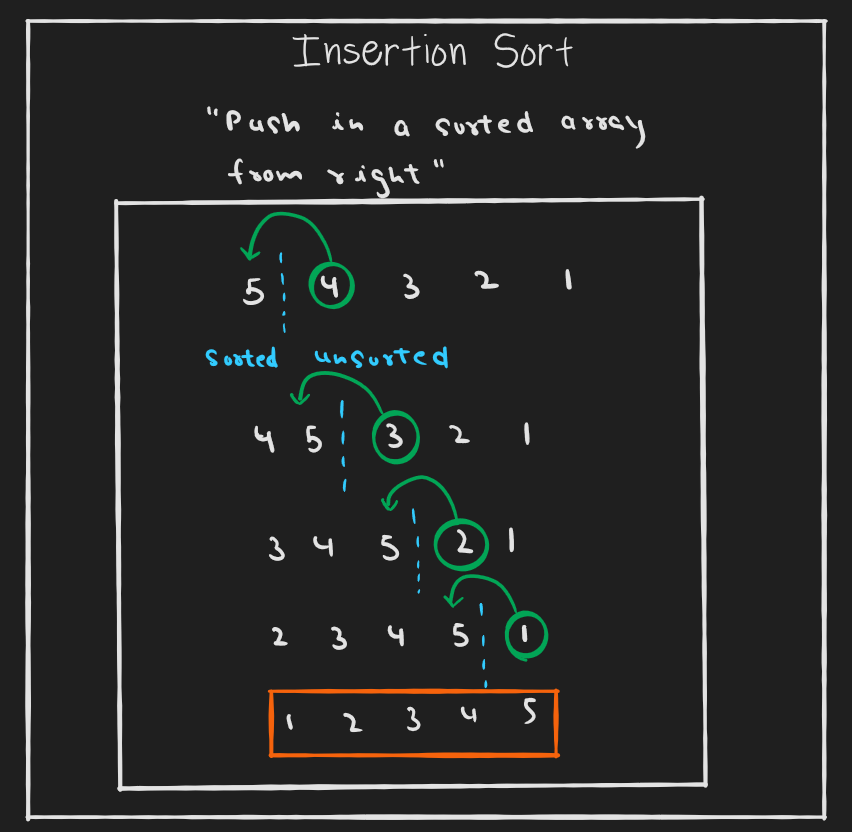 Insertion Sort
"Push in a sorted array
from right"
5 4 3 2 1
sorted unsorted
4 5 3 2 1
3 4 5 2 1
2 3 4 5 1
1 2 3 4 5